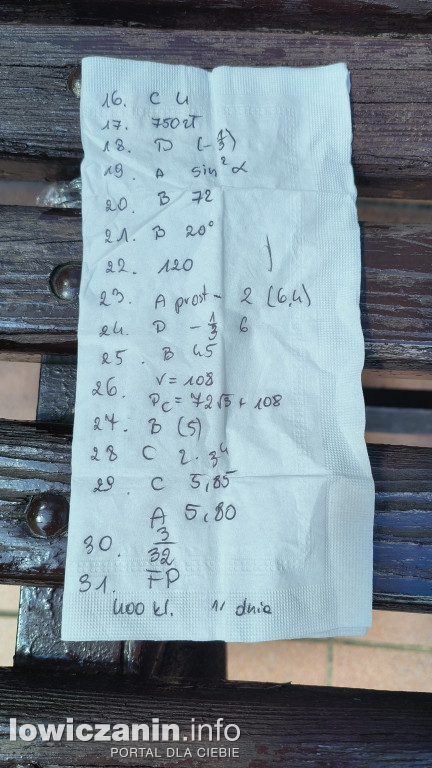 16. C 4
17. 750 zł
18. D (-1/3)
19. A sin²α
20. B 72
21. B 20°
22. 120
23. A prost - 2 (6,4)
24. D - 1/3 6
25. B 45
26. V = 108
Pc = 72√3 + 108
27. B (5)
28 C 2·3⁴
29. C 5,85
A 5,80
30. 3/32
31. FP
400 kl. 11 dnia
lowiczanin.info
PORTAL DLA CIEBIE